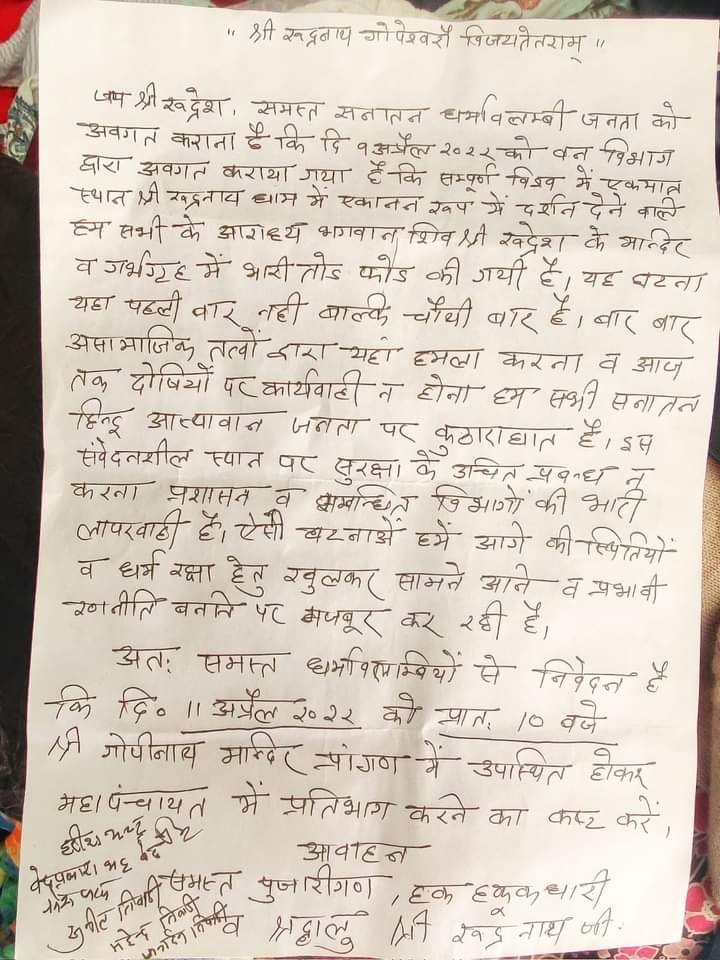 " श्री रूद्रनाथ गोपेश्वरौ विजयतेतराम् "
जय श्री रुद्रेश, समस्त सनातन धर्मावलम्बी जनता को
अवगत कराना है कि दि ९ अप्रैल २०२२ को वन विभाग
द्वारा अवगत कराया गया है कि सम्पूर्ण विश्व में एकमात्र
स्थान श्री रूद्रनाथ धाम में एकानन रूप में दर्शन देने वाले
हम सभी के आराध्य भगवान शिव श्री रुद्रेश के मन्दिर
व गर्भगृह में भारी तोड फोड की गयी है, यह घटना
यहा पहली वार नही बल्कि चौथी बार है, बार बार
असामाजिक तत्वों द्वारा यहां हमला करना व आज
तक दोषियों पर कार्यवाही न होना हम सभी सनातन
हिन्दू आस्थावान जनता पर कुठाराघात है, इस
संवेदनशील स्थान पर सुरक्षा के उचित प्रबन्ध न
करना प्रशासन व सम्बन्धित विभागों की भारी
लापरवाही है, ऐसी घटनाऐं हमें आगे की स्थितियों
व धर्म रक्षा हेतु खुलकर सामने आने व प्रभावी
रणनीति बनाने पर मजबूर कर रही है,
अतः समस्त धर्मावलम्बियों से निवेदन है
कि दि० 11 अप्रैल २०२२ को प्रातः 10 वजे
श्री गोपीनाथ मन्दिर प्रांगण में उपस्थित होकर
महापंचायत में प्रतिभाग करने का कष्ट करें,
हरीश भट्ट
वेदप्रकाश भट्ट
आवाहन
समस्त पुजारीगण, हक हकूकधारी
सुनील तिवाडी
महेन्द्र तिवाडी
व श्रद्धालु श्री रूद्रनाथ जी.